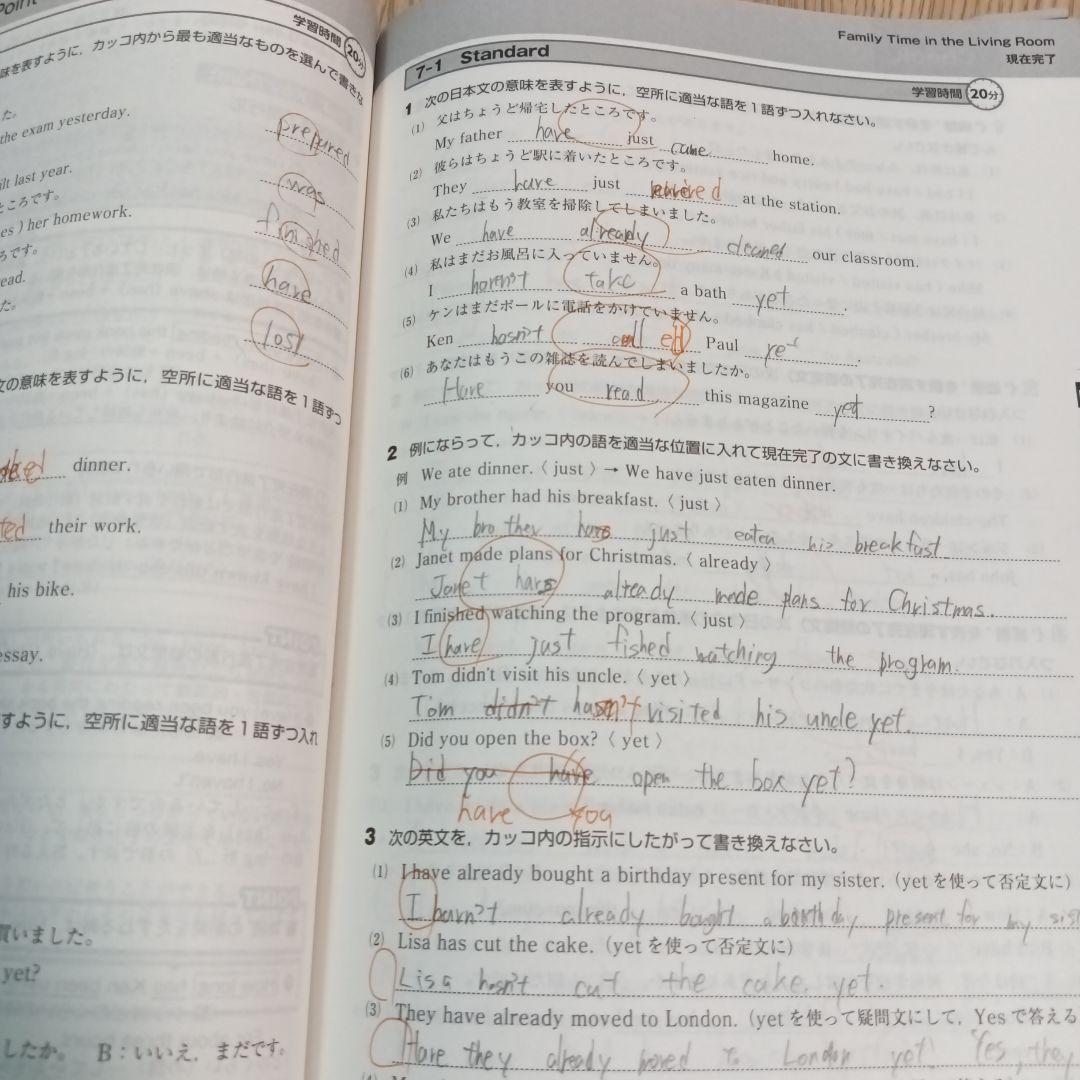 Point
学習時間 20分
味を表すように,カッコ内から最も適当なものを選んで書きな
た。
the exam yesterday.
prepared
ilt last year.
was
ところです。
es ) her homework.
finished
ろです。
ead.
have
た。
lost
文の意味を表すように,空所に適当な語を1語ずつ
dinner.
ted their work.
his bike.
essay.
すように,空所に適当な語を1語ずつ入れ
買いました。
yet?
したか。 B:いいえ,まだです。
Family Time in the Living Room
現在完了
7-1 Standard
学習時間 20分
1 次の日本文の意味を表すように,空所に適当な語を1語ずつ入れなさい。
(1) 父はちょうど帰宅したところです。
My father have just came home.
(2) 彼らはちょうど駅に着いたところです。
They have just at the station.
(3) 私たちはもう教室を掃除してしまいました。
We have already cleaned our classroom.
(4) 私はまだお風呂に入っていません。
I haven't take a bath yet.
(5) ケンはまだポールに電話をかけていません。
Ken hasn't call ed Paul yet.
(6) あなたはもうこの雑誌を読んでしまいましたか。
Have you read this magazine yet?
2 例にならって,カッコ内の語を適当な位置に入れて現在完了の文に書き換えなさい。
例 We ate dinner.〈 just 〉→ We have just eaten dinner.
(1) My brother had his breakfast.〈 just 〉
My brother has just eaten his breakfast
(2) Janet made plans for Christmas.〈 already 〉
Janet has already made plans for Christmas.
(3) I finished watching the program.〈 just 〉
I have just fished watching the program.
(4) Tom didn't visit his uncle.〈 yet 〉
Tom didn't hasn't visited his uncle yet.
(5) Did you open the box?〈 yet 〉
Did you have open the box yet?
have you
3 次の英文を,カッコ内の指示にしたがって書き換えなさい。
(1) I have already bought a birthday present for my sister.(yetを使って否定文に)
I already bought a birthday present for my sist
(2) Lisa has cut the cake.(yetを使って否定文に)
Lisa hasn't cut the cake. yet.
(3) They have already moved to London.(yetを使って疑問文にして,Yesで答える
Have they already moved to London yet? Yes, they